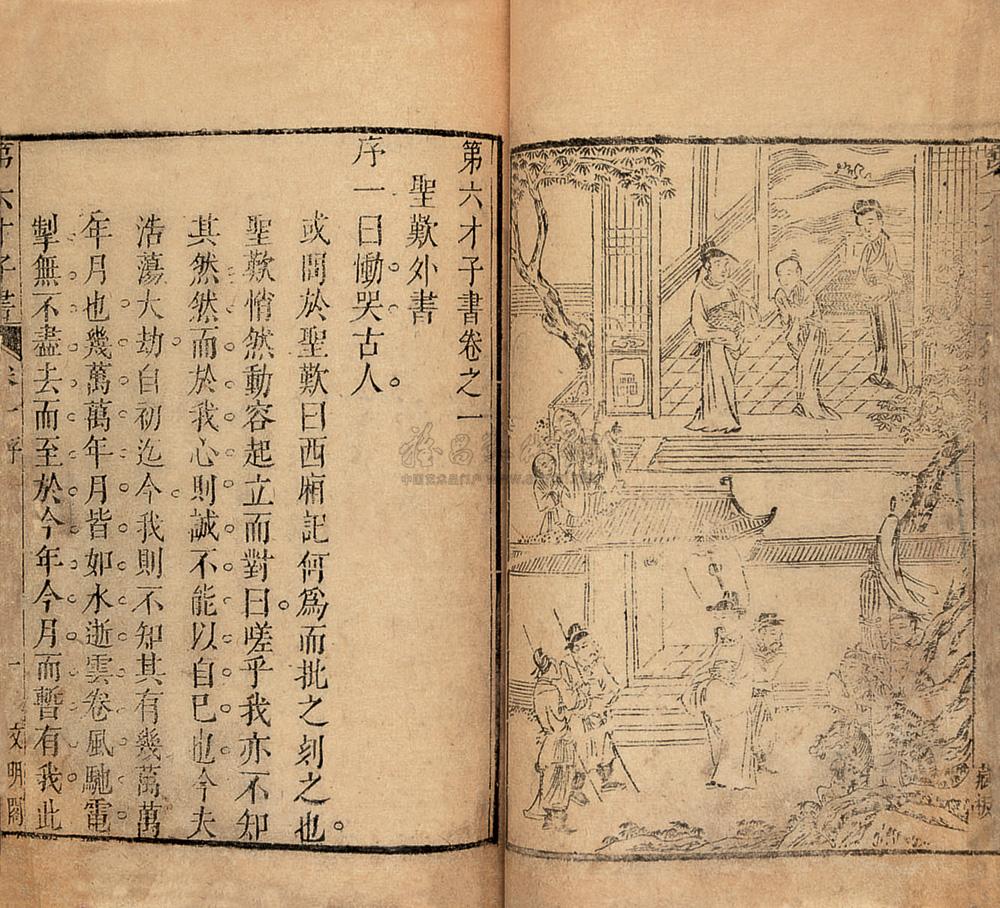 第六才子書卷之一
聖歎外書
序一曰慟哭古人
或問於聖歎曰西廂記何爲而批之刻之也
聖歎悄然動容起立而對曰嗟乎我亦不知
其然然而於我心則誠不能以自已也今夫
浩蕩大劫自初迄今我則不知其有幾萬萬
年月也幾萬萬年月皆如水逝雲卷風馳電
掣無不盡去而至於今年今月而暫有我此
第六才子書 卷一 序 一 文明閣